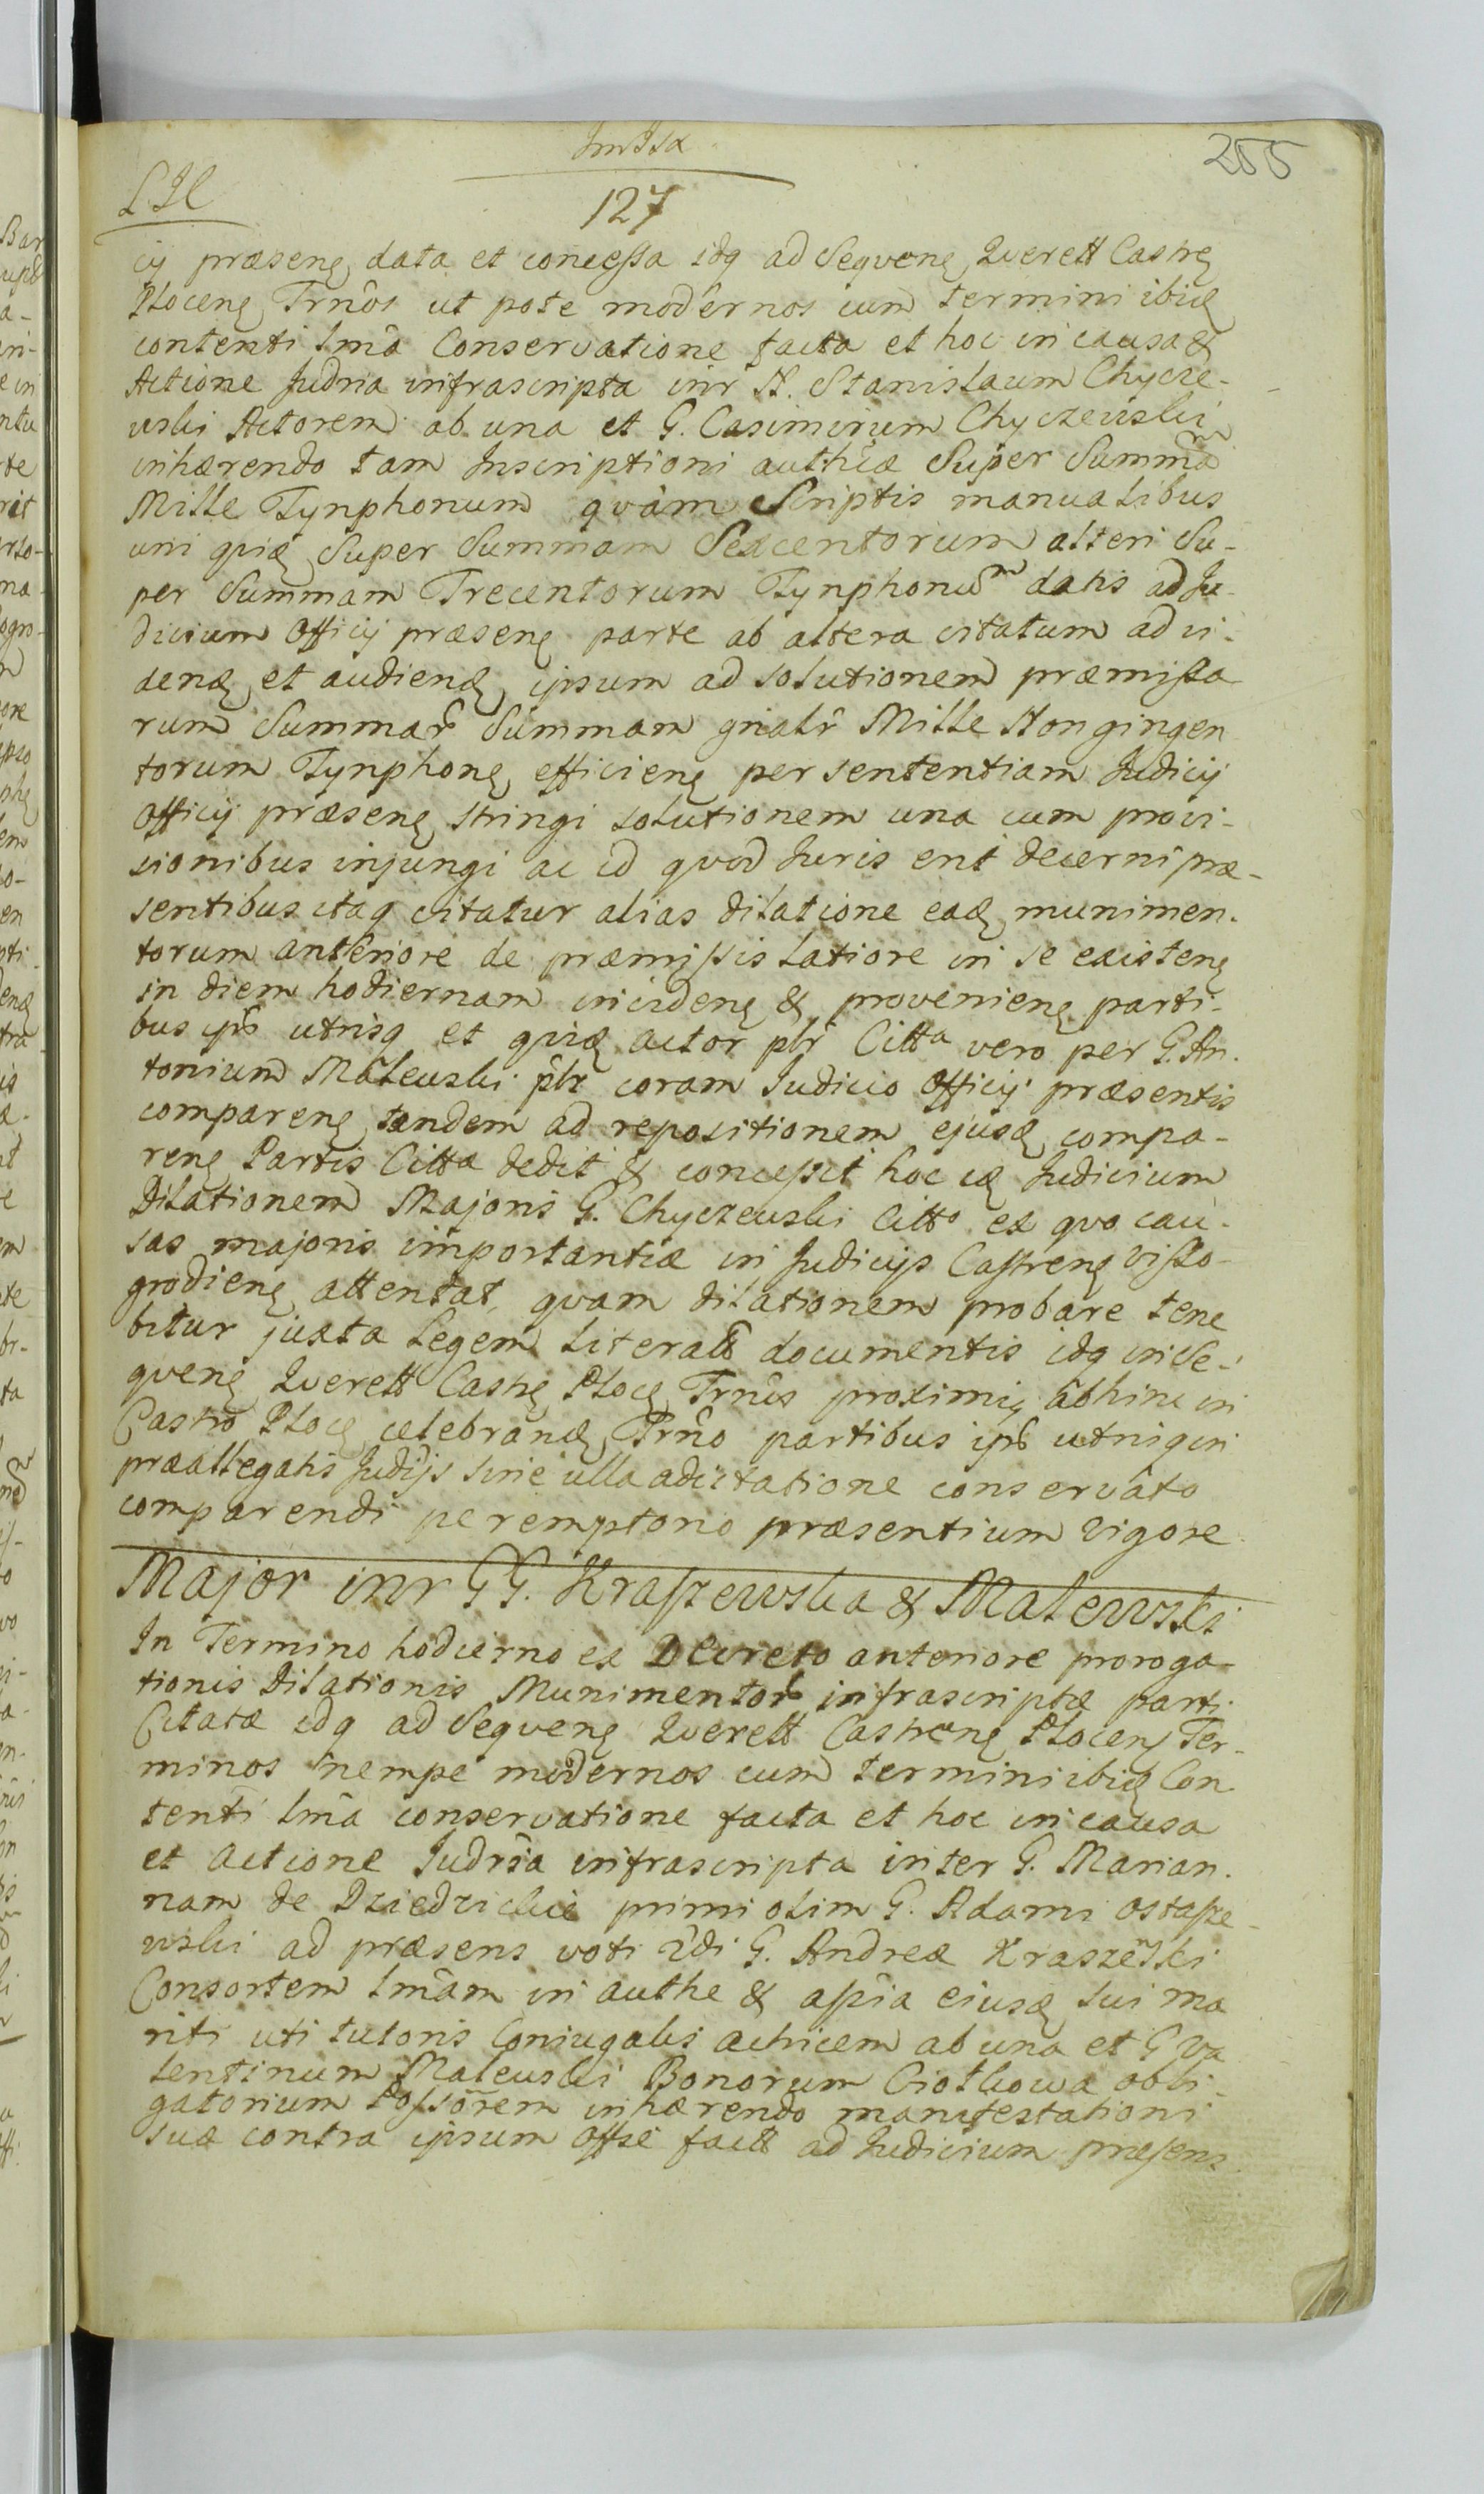 255
127
ij præsenę data et concessa idq ad Seqvenę Qverell Castrę
Plocenę Trnôs ut pote modernos cum termini ibidę
contenti lmâ Conservatione facta et hoc in causa &
Actione Judria infrascripta inr N. Stanislaum Chycze-
wski Actorem ab una et G. Casimirum Chyczewski
inhærendo tam Inscriptioni authcæ Super Summam
Mille Tynphonum qvàm Scriptis manualibus
uni qvidę Super Summam Sexcentorum alteri Su-
per Summam Trecentorum Tynphonum datis ad Ju-
dicium Officij præsenę parte ab altera citatum ad vi-
dendę et audiendę ipsum ad solutionem præmissa
rum Summar Summam gnalr Mille Nongingen
torum Tynphonę efficienę per sententiam Judicij
Officij præsenę stringi solutionem una cum provi-
sionibus injungi ac id qvod Juris erit decerni præ-
sentibus itaq citatur alias dilatione eadę munimen-
torum anteriore de præmissis latiore in se existenę
in diem hodiernam incidenę & provenienę parti-
bus ipis utrisq et qvidę actor plr Citta vero per G. An-
tonium Malewski plr coram Judicio Officij præsentis
comparenę tandem ad repositionem ejusdę compa-
renę Partis Cittæ dedit & concessit hoc idę Judicium
Dilationem Majoris G. Chyczewski Citto ex qvo cau-
sas majoris importantiæ in Judicijs Castrenę Visso-
grodienę attentat, qvam dilationem probare tene
bitur juxta Legem Literatt documentis idq in Se-
qvenę Qverell Castrę Plocę Trnis proximię abhinc in
Castro Plocę celebrandę Trno partibus ipis utrisq in
præallegatis Judijs sine ulla adcitatione conservato
comparendi peremptorio præsentium vigore
Major inr GG. Kraszewska & Malewski
In Termino hodierno ex Decreto anteriore proroga-
tionis Dilationis Munimentor infrascriptæ parti
Citatæ idq ad Seqvenę Qverell Castrenę Plocenę Ter-
minos nempe modernos cum termini ibidę Con-
tenti lmâ conservatione facta et hoc in causa
et actione Judria infrascripta inter G. Marian-
nam de Dziedzickie primi olim G. Adami Ostasze-
wski ad præsens voti 2di G. Andreæ Kraszewski
Consortem lmâm in authe & assia eiusdę sui ma
riti uti tutoris Coniugalis actricem ab una et G Va
lentinum Malewski Bonorum Ciotkowa obli-
gatorium Possõrem inhærendo manifestationi
suæ contra ipsum offse factt ad Judicium præsens